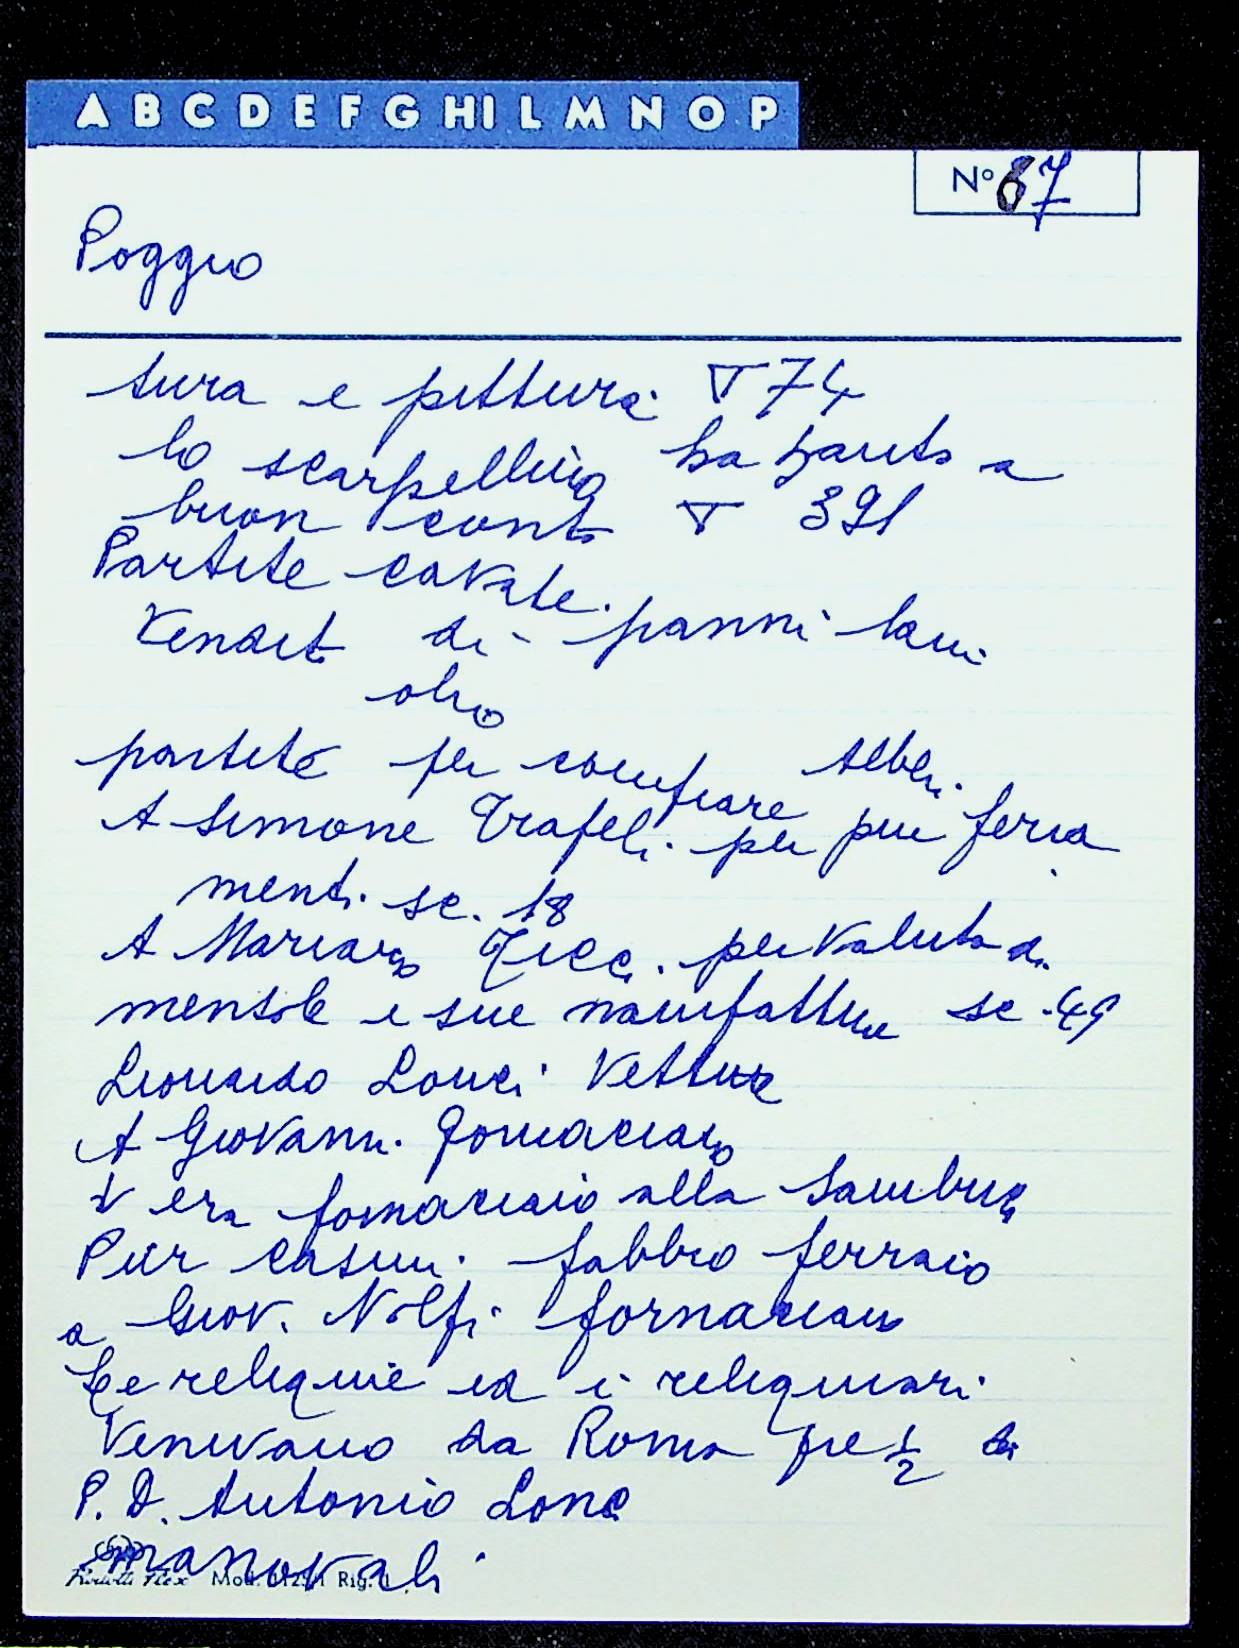 A B C D E F G HI L M N O P
N° 67
Poggio
tura e pittura ▽ 74
lo scarpellino ha hauto a
buon conto ▽ 391
Partite cavate.
Vendit di panni lani
olio
partite per comprare Alberi
A Simone Trafeli per piu ferra
menti. sc. 18
A Mariano Ticci. per valuta di
mensole e sue manifatture sc. 49
Leonardo Lonci Vetture
A Giovanni Fornaciaio
V era fornaciaio alla Sambuca
Pier Casini fabbro ferraio
a Giov. Nolfi fornaciaio
Le reliquie ed i reliquiari
Venivano da Roma pre 1/2 di
P. D. Antonio Lonc
manovali
Mod. Rig.